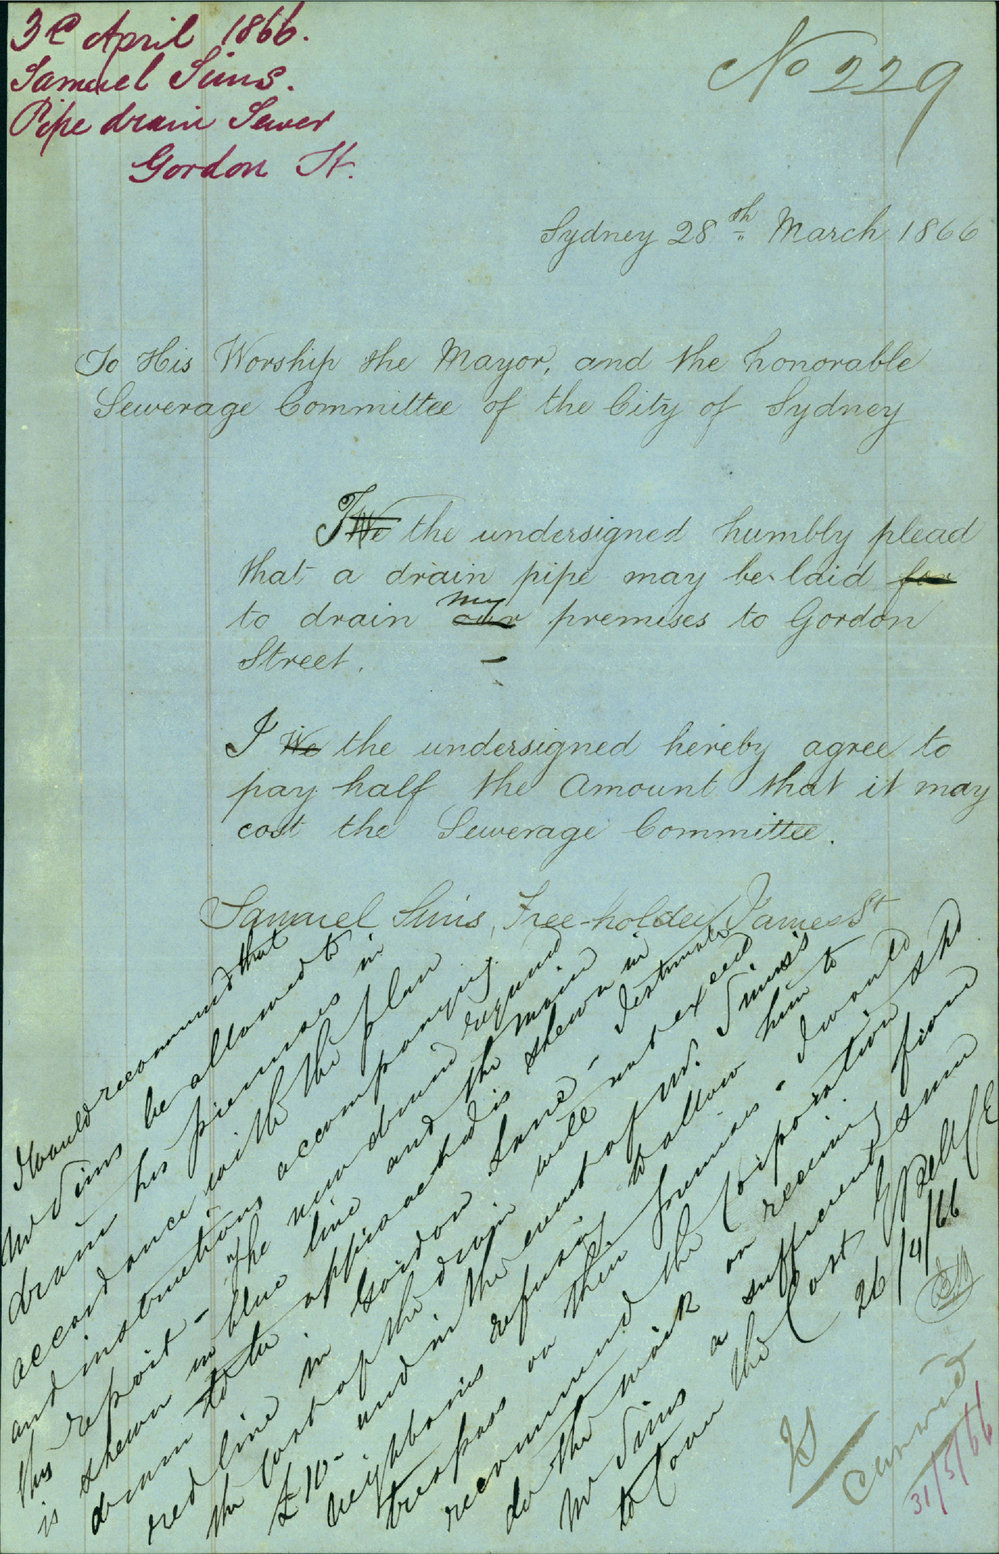 3d April 1866.
Samuel Sims.
Pipe drain Sewer
Gordon St.
No 229
Sydney 28th March 1866
To His Worship the Mayor, and the honorable
Sewerage Committee of the City of Sydney
I We the undersigned humbly plead
that a drain pipe may be laid for
to drain my our premises to Gordon
Street.
I We the undersigned hereby agree to
pay half the Amount that it may
cost the Sewerage Committee.
Samuel Sims, Free-holder James St
I would recommend that
Mr Sims be allowed to
drain his premises in
accordance with the plan
and instructions accompanying
this report - The new drain required
is shewn in blue line and the main
drain to be approached is shewn in
red line in Gordon Lane - Estimate
the Cost of the drain will not exceed
£10 - and in the event of Mr. Sims's
neighbours refusing to allow him to
trespass on their premises - I would
recommend the Corporation shd
do the work on receiving from
Mr Sims a sufficient sum
to Cover the Cost
E Bell C E
26/4/66
31/5/66